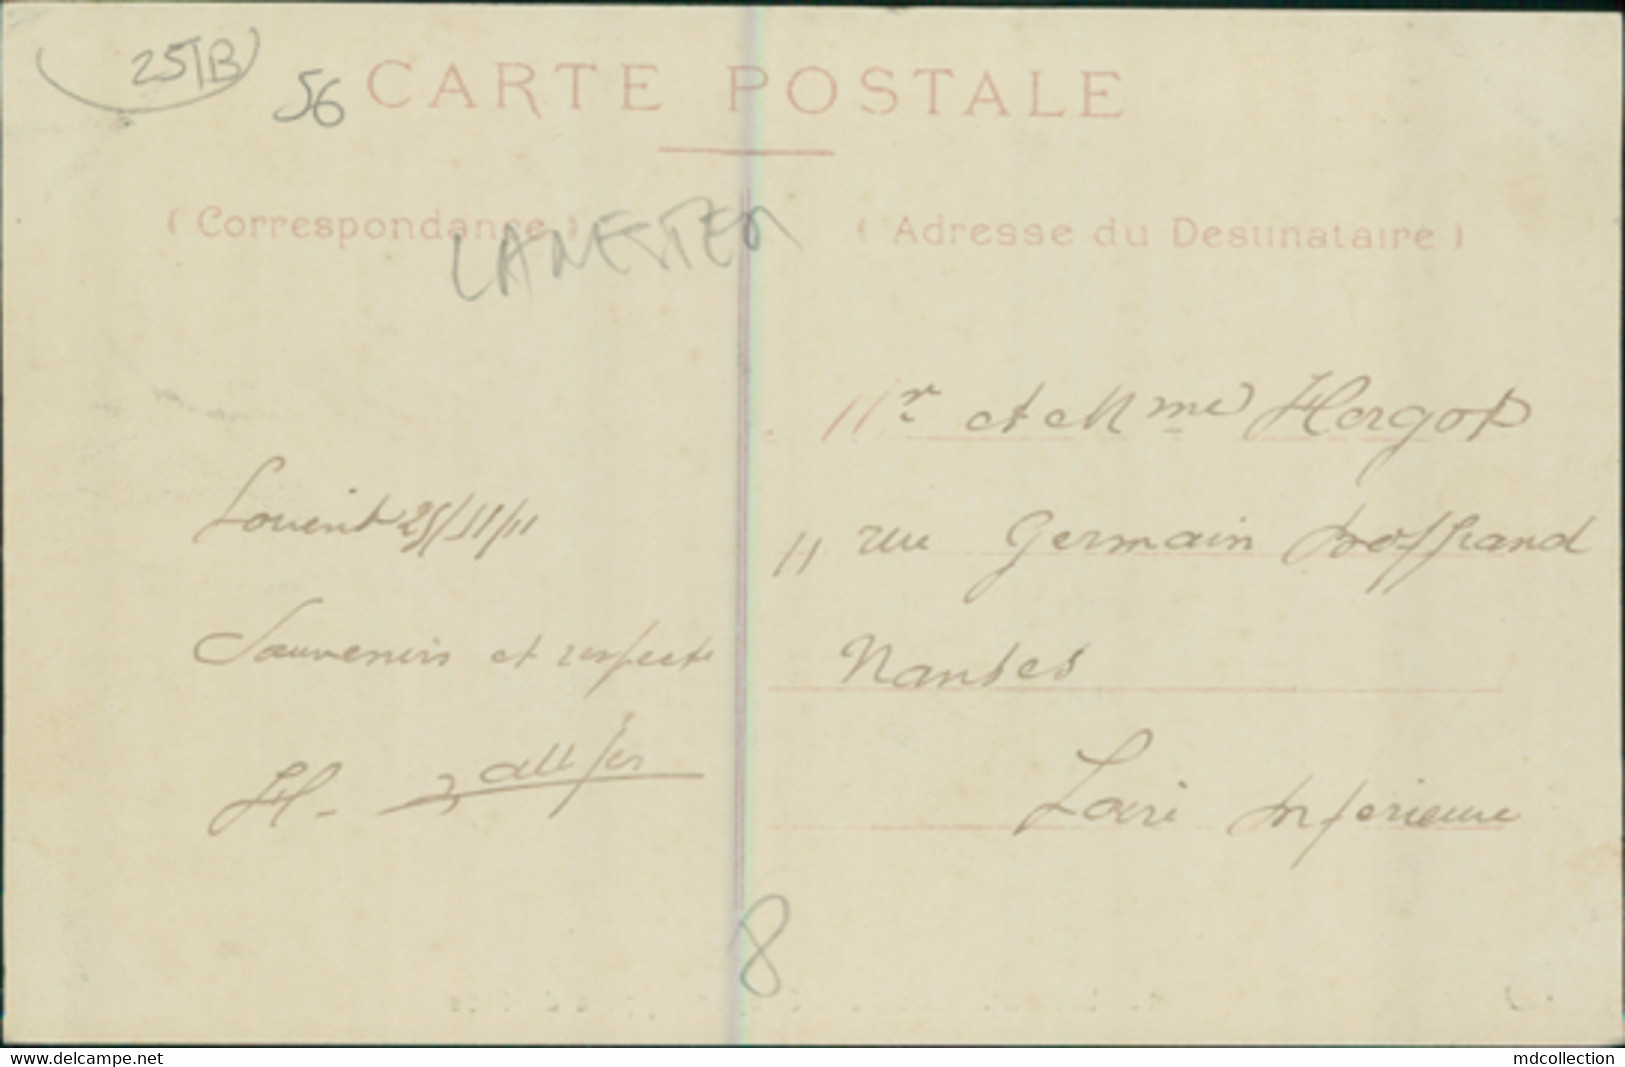 25TB
56
CARTE POSTALE
(Correspondance)
LANESTER
(Adresse du Destinataire)
Mr et Mme Hergot
Lorient 25/11/11
11 rue Germain Boffrand
Souvenirs et respects
Nantes
H.
Loire Inferieure
8
www.delcampe.net
mdcollection